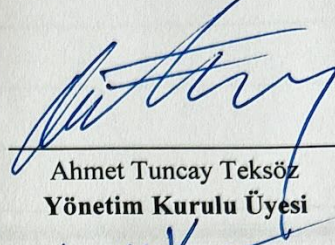 Ahmet Tuncay Teksöz
Yönetim Kurulu Üyesi